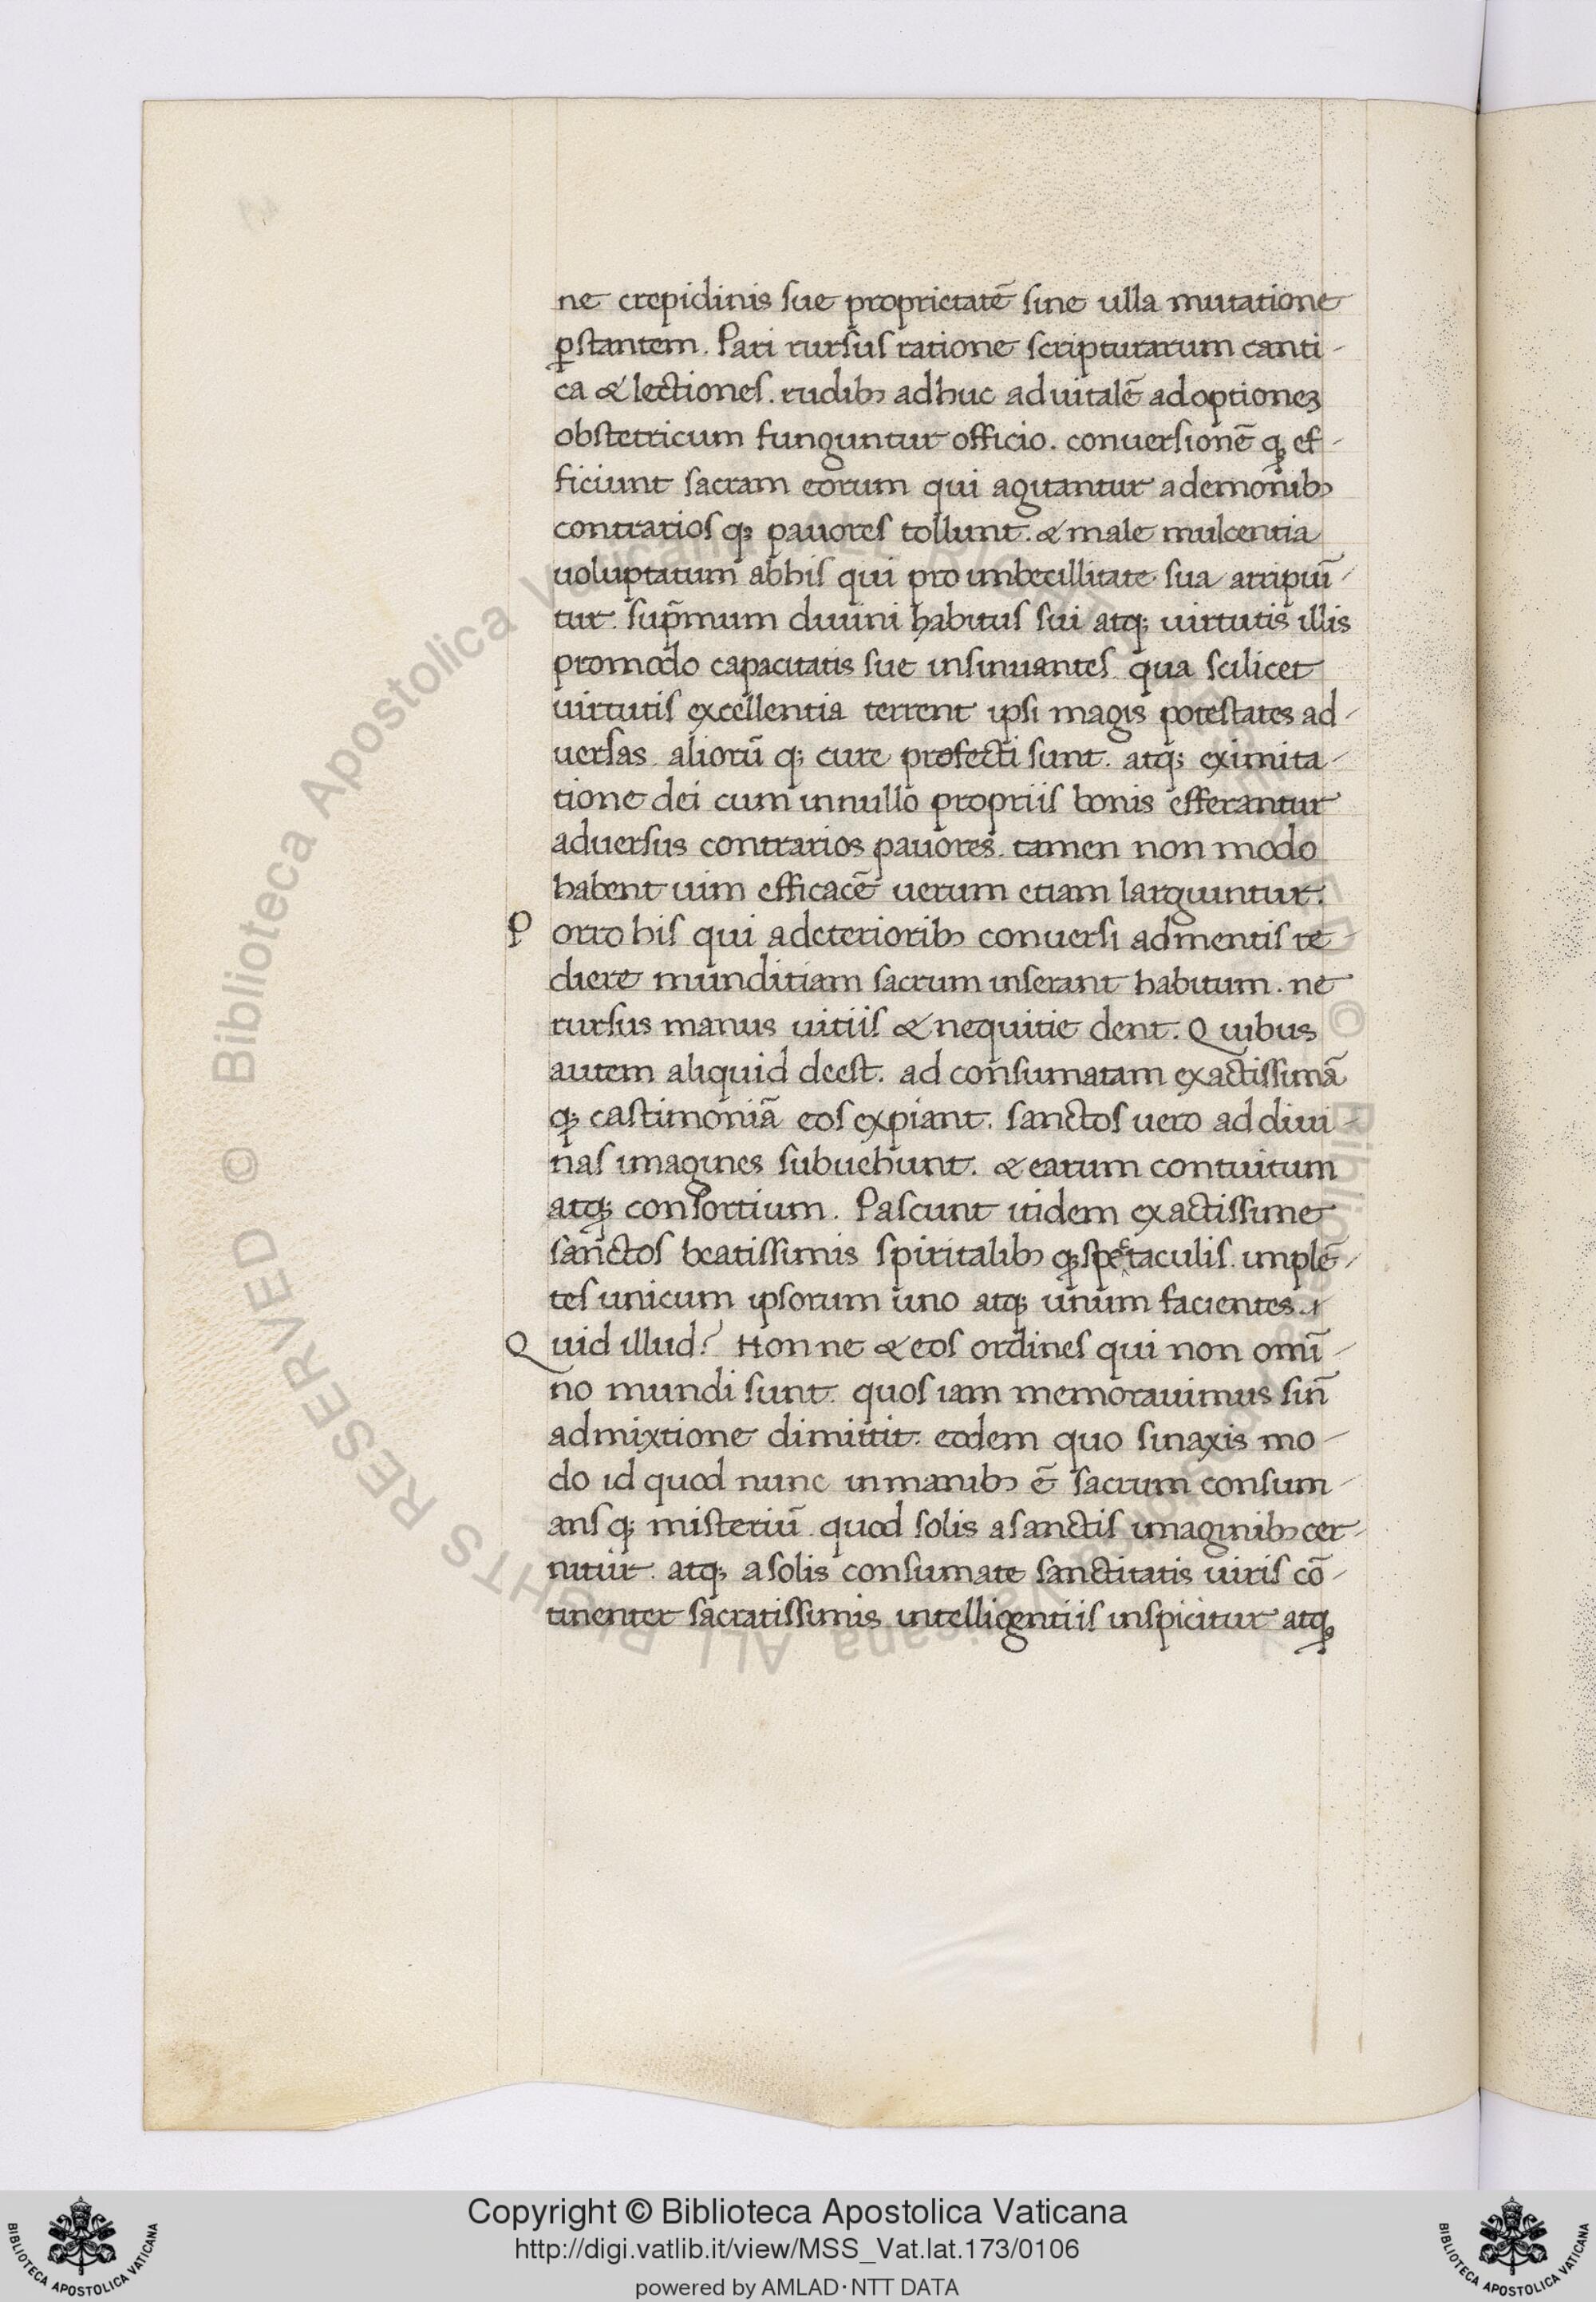 ne crepidinis sue proprietatē sine ulla mutatione
ꝑstantem. Pari rursus ratione scripturarum canti-
ca & lectiones. rudibꝫ adhuc ad uitalē adoptioneꝫ
obstetricum funguntur officio. conuersionē qꝫ ef-
ficiunt sacram eorum qui agitantur a demonibꝫ
contrarios qꝫ pauores tollunt. & male mulcentia
uoluptatum ab his qui pro imbecillitate sua arripiū-
tur. sup̄mum diuini habitus sui atqꝫ uirtutis illis
pro modo capacitatis sue insinuantes. qua scilicet
uirtutis excellentia terrent ipsi magis potestates ad-
uersas. aliorū qꝫ cure profecti sunt. atqꝫ ex imita-
tione dei cum in nullo propriis bonis efferantur
aduersus contrarios pauores. tamen non modo
habent uim efficacē uerum etiam larguintur.
Porro his qui a deterioribꝫ conuersi ad mentis re-
diere munditiam sacrum inserant habitum. ne
rursus manus uitiis & nequitie dent. Quibus
autem aliquid deest. ad consumatam exactissimā
qꝫ castimoniā eos expiant. sanctos uero ad diui-
nas imagines subuehunt. & earum contuitum
atqꝫ consortium. Pascunt itidem exactissime
sanctos beatissimis spiritalibꝫ qꝫ spectaculis. implē-
tes unicum ipsorum uno atqꝫ unum facientes.
Quid illud? Non ne & eos ordines qui non omī-
no mundi sunt. quos iam memorauimus sin̄
admixtione dimittit. eodem quo sinaxis mo-
do id quod nunc in manibꝫ ē sacrum consum-
ans qꝫ misteriū. quod solis a sanctis imaginibꝫ cer-
nitur. atqꝫ a solis consumate sanctitatis uiris cō-
tinenter sacratissimis intelligentiis inspicitur atqꝫ
Copyright © Biblioteca Apostolica Vaticana
http://digi.vatlib.it/view/MSS_Vat.lat.173/0106
powered by AMLAD·NTT DATA
BIBLIOTECA APOSTOLICA VATICANA
BIBLIOTECA APOSTOLICA VATICANA